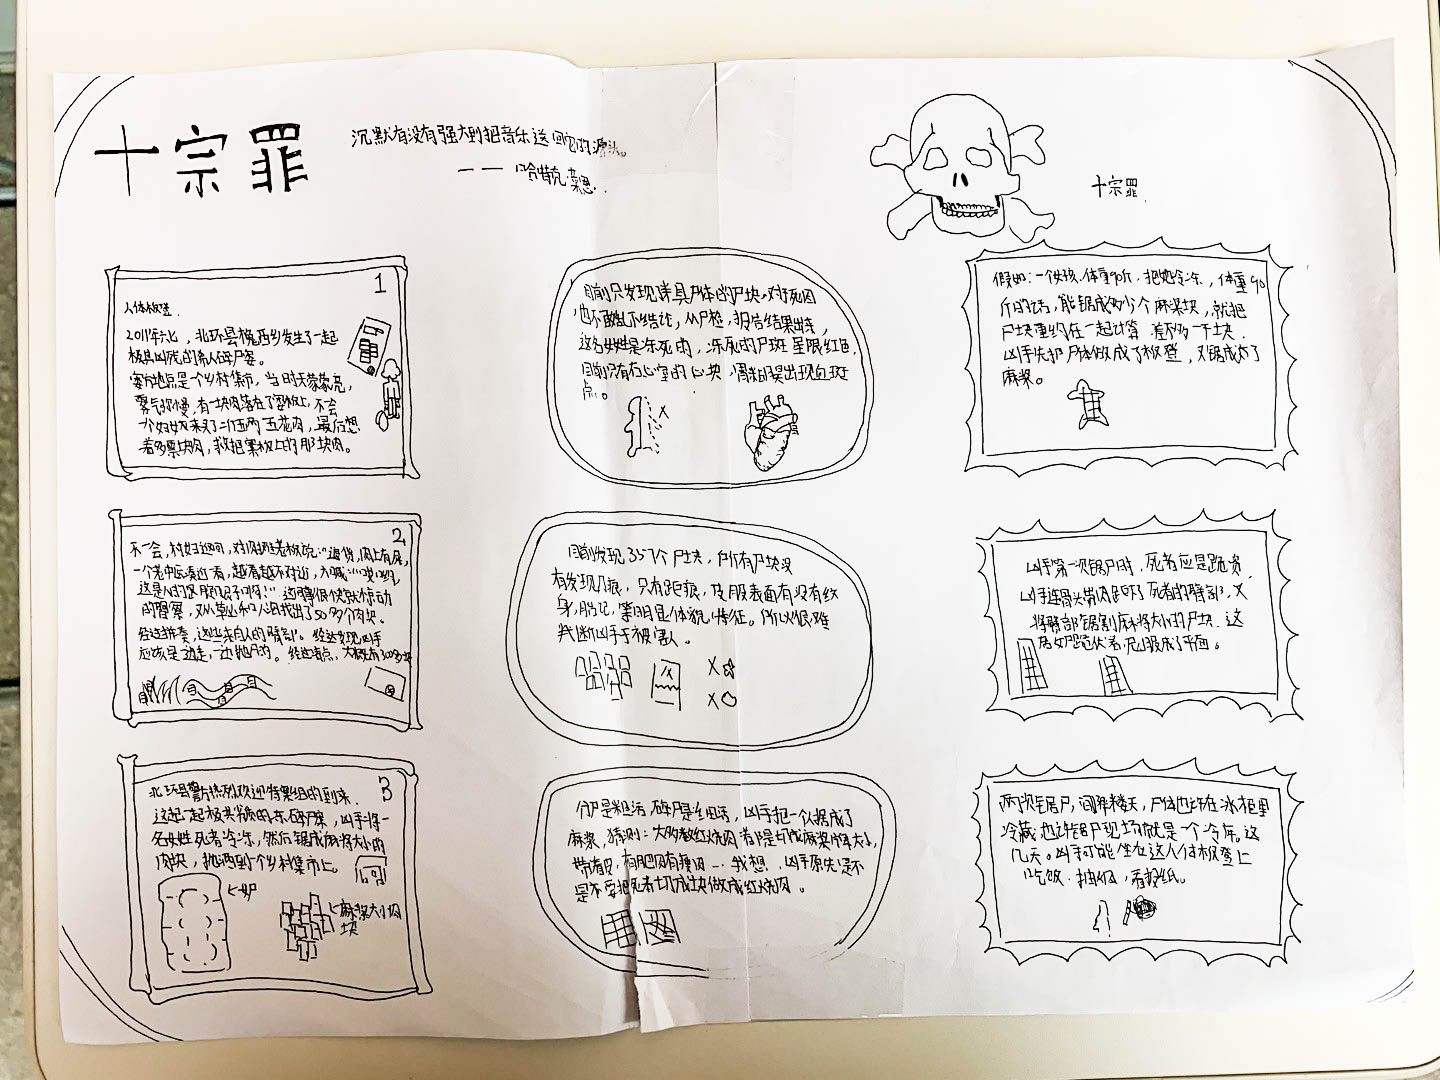 十宗罪
沉默有没有强大到把音乐送回它的源头。
—— 哈特克莱恩
十宗罪
1
人体板凳
2011年六七，北环县槐西乡发生了一起
极其凶残的杀人碎尸案。
案发地点是个乡村集市，当时天蒙蒙亮，
雾气弥漫，有一块肉落在了案板上，不会
一个妇女来买了二斤五两五花肉，最后想
着多票块肉，就把案板上的那块肉。
2
不一会，村妇返回，对肉摊老板说："退货，肉上有尾，
一个老中医凑近看，越看越不对近，大喊："哎哟，
这是人的尾股沟子啊！"这事很快就惊动
的警察，从草丛和心沟找出了50多个肉块。
经过拼凑，这些来自人的臀部。经过发现凶手
应该是边走，一边抛的。经过清点，大概有300多块
3
北环县警方热烈欢迎特案组的到来
这起一起极其诡的杀碎尸案，凶手将一
名女姓死者冷冻，然后锯成麻将大小的
肉块，抛洒到个乡村集市上。
麻浆大小肉
块
目前只发现详具尸体的尸块，对死因
也不敢乱下结论，从尸检，报告结果出来，
这名女姓是冻死的，冻死的尸斑呈限红色，
目前只有右心室的心块，滑粘膜出现血斑
点。
目前发现357个尸块，所有尸块没
有发现刀痕，只有距痕，皮服表面有没有纹
身，胎记，等明显体貌，特征。所以很难
判断凶手于被害人。
分尸是粗活，碎尸是细活，凶手把一人据成了
麻浆，猜测：大多数红烧肉都是切成麻浆牌大小，
带猪皮，有肥肉有瘦肉…我想，凶手原先是不
是不要把死者切成块做成红烧肉。
假如：一个女孩，体重90斤，把她冷冻，体重90
斤的话，能锯成多少个麻浆块，就把
尸块重约在一起计算 差不多一千块
凶手先把尸体做成了板登，又锯成为了
麻浆。
凶手第一次锯尸时，死者应是跪资，
凶手连骨头带肉距了死者的臀部，又
将臀部锯割麻将大小的尸块，这
居女跪伏着，尼股成了平面。
两次锯尸，间隔数天，尸体也许在冰柜里
冷藏，也许锯尸现场就是一个冷库。这
几天。凶手可能坐在这人体板登上
吃饭、抽烟，看报纸。